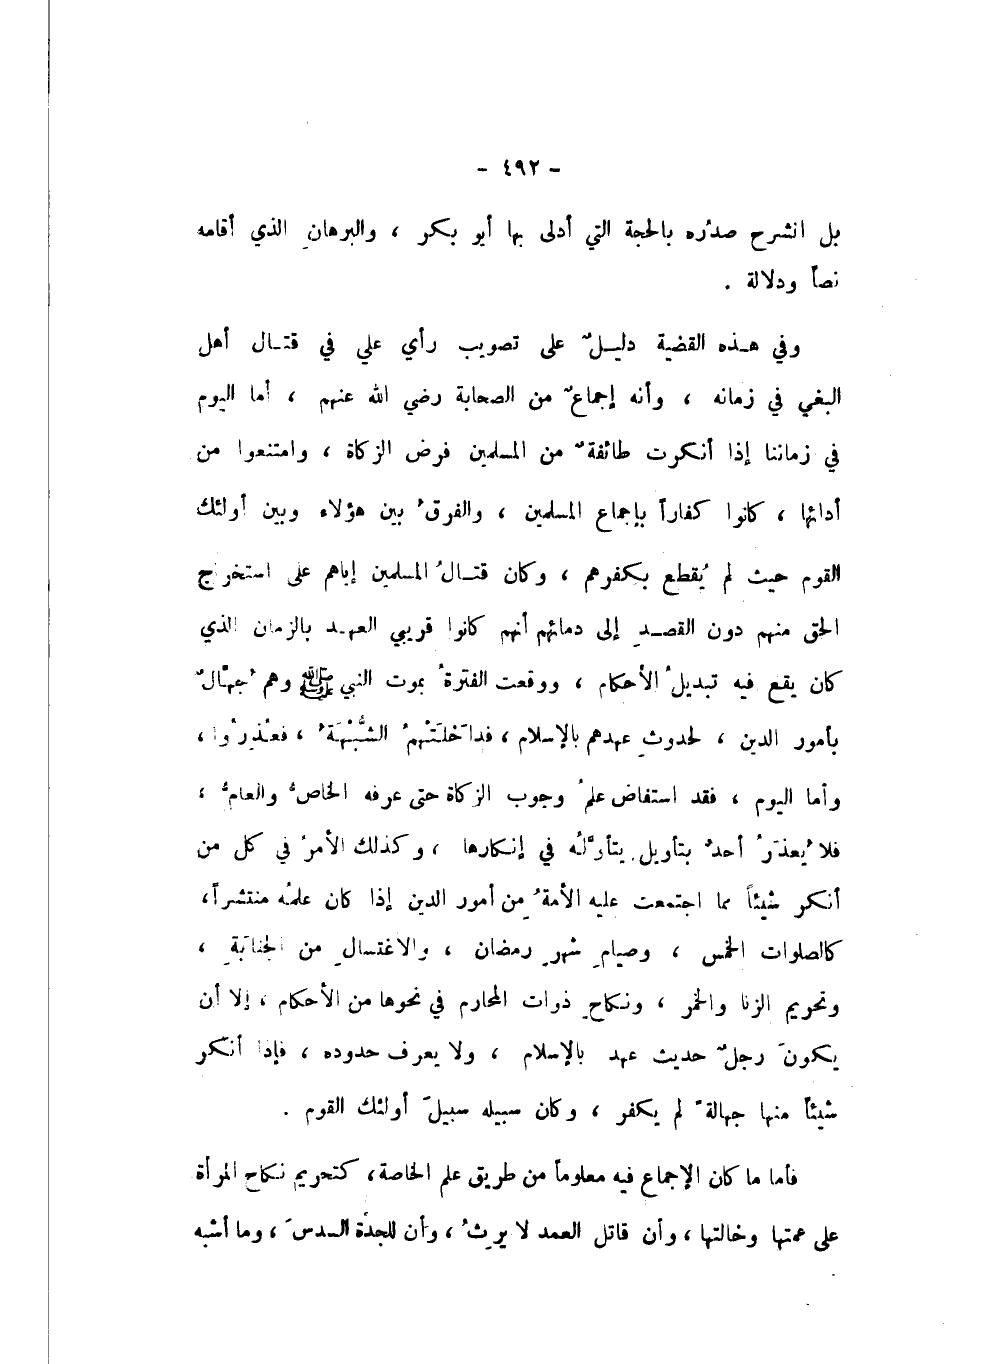 - ٤٩٢ -
بل انشرح صدرُه بالحجة التي أدلى بها أبو بكر ، والبرهانِ الذي أقامه
نصاً ودلالة .
وفي هـذه القضية دليـلٌ على تصويب رأي علي في قتـال أهل
البغي في زمانه ، وأنه إجماعٌ من الصحابة رضي الله عنهم ، أما اليوم
في زماننا إذا أنكرت طائفةٌ من المسلمين فرض الزكاة ، وامتنعوا من
أدائها ، كانوا كفاراً بإجماع المسلمين ، والفرقُ بين هؤلاء وبين أولئك
القوم حيث لم يُقطع بكفرهم ، وكان قتـالُ المسلمين إياهم على استخراج
الحق منهم دون القصـدِ إلى دمائهم أنهم كانوا قريبي العهـد بالزمان الذي
كان يقع فيه تبديلُ الأحكام ، ووقعت الفترةُ بموت النبي ﷺ وهم جُهّالٌ
بأمور الدين ، لحدوثِ عهدهم بالإسلام ، فداخَلَتْهمُ الشُّبْهَةُ ، فعُذِرُوا ،
وأما اليوم ، فقد استفاض علمُ وجوب الزكاة حتى عرفه الخاصُّ والعامُّ ،
فلا يُعذَرُ أحدٌ بتأويل يتأوّلُه في إنكارها ، وكذلك الأمرُ في كل من
أنكر شيئاً مما اجتمعت عليه الأمةُ مِن أمور الدين إذا كان علمُه منتشراً،
كالصلوات الخمس ، وصيامِ شهرِ رمضان ، والاغتسالِ من الجنابَةِ ،
وتحريم الزنا والخمر ، ونكاحِ ذوات المحارم في نحوها من الأحكام ، إلا أن
يكونَ رجلٌ حديث عهد بالإسلام ، ولا يعرف حدوده ، فإذا أنكر
شيئاً منها جهالةً لم يكفر ، وكان سبيله سبيلَ أولئك القوم .
فأما ما كان الإجماع فيه معلوماً من طريق علم الخاصة، كتحريم نكاح المرأة
على عمتها وخالتها ، وأن قاتل العمد لا يرِثُ ، وأن للجدّة السدسَ ، وما أشبه